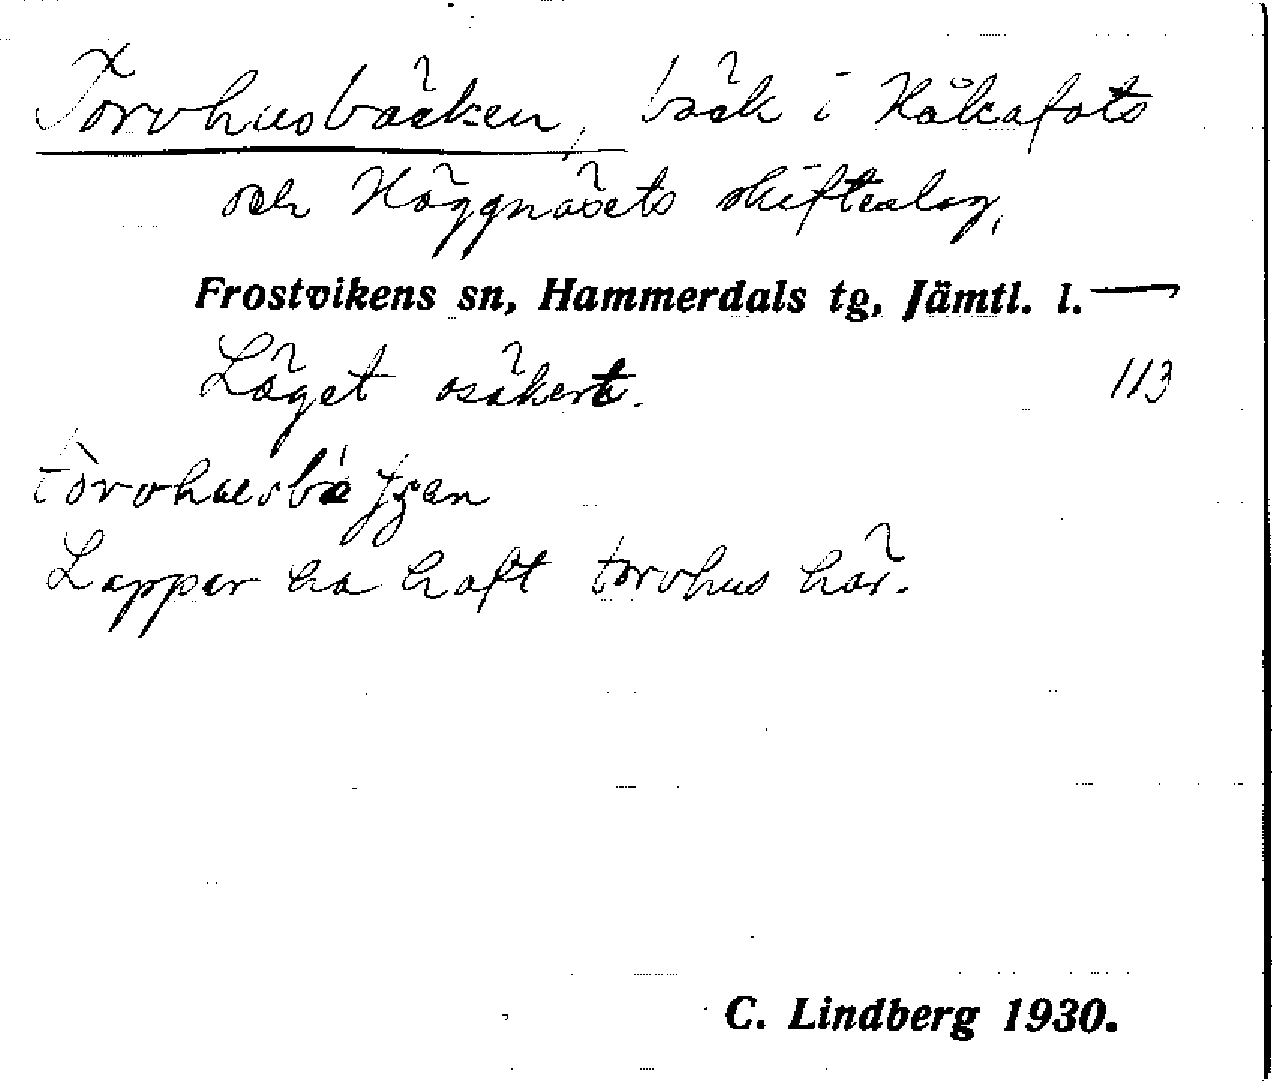 Torvhusbäcken, bäck i Håkafots
och Häggnäsets skifteslag,
Frostvikens sn, Hammerdals tg, Jämtl. l.—
Läget osäkert. 113
Lappar ha haft torvhus här.
C. Lindberg 1930.